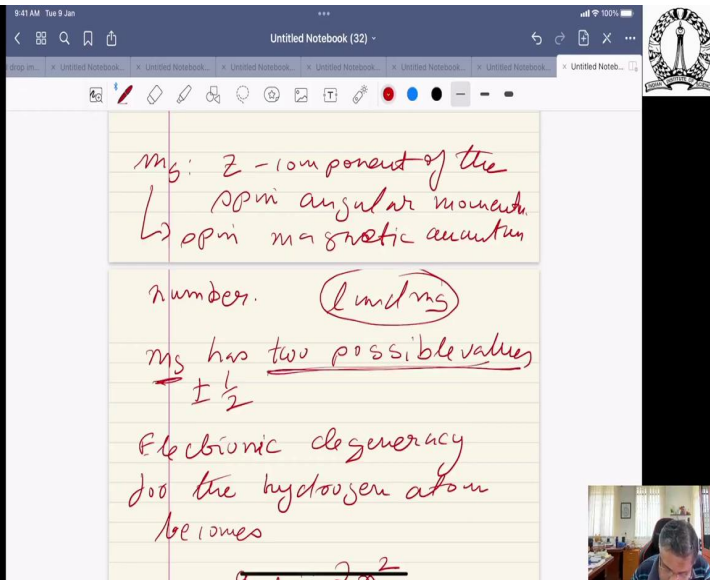 9:41 AM Tue 9 Jan
100%
Untitled Notebook (32)
drop im...
Untitled Notebook...
Untitled Notebook...
Untitled Notebook...
Untitled Notebook...
Untitled Notebook...
Untitled Notebook...
Untitled Noteb...
ms: z-component of the
spin angular momentu
spin magnetic quantum
number.
ms has two possible values
± 1/2
Electronic degeneracy
for the hydrogen atom
becomes
2n²